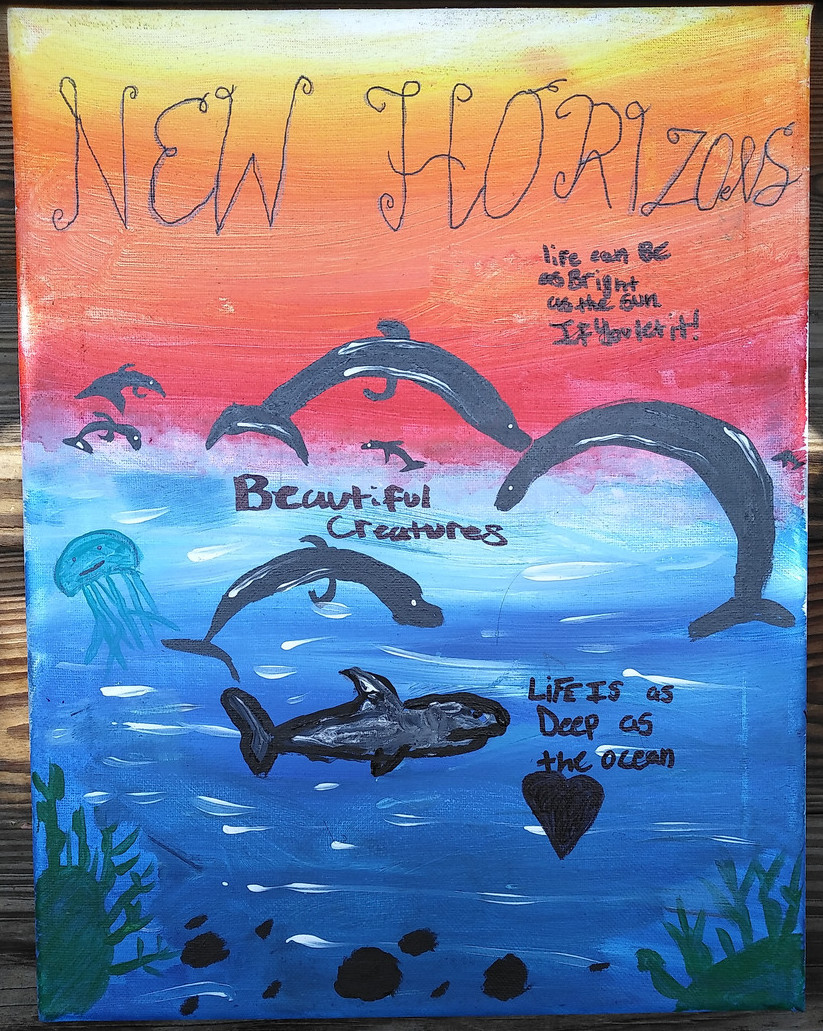 NEW HORIZONS
life can BE
as Bright
as the sun
If You let it!
Beautiful
Creatures
LiFE IS as
Deep as
the ocean